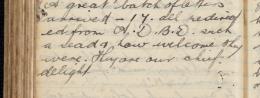 A great batch of letters
arrived – 17. del. redirect
ed from A. D. B. E. such
a lead, how welcome they
were. They are our chief
delight